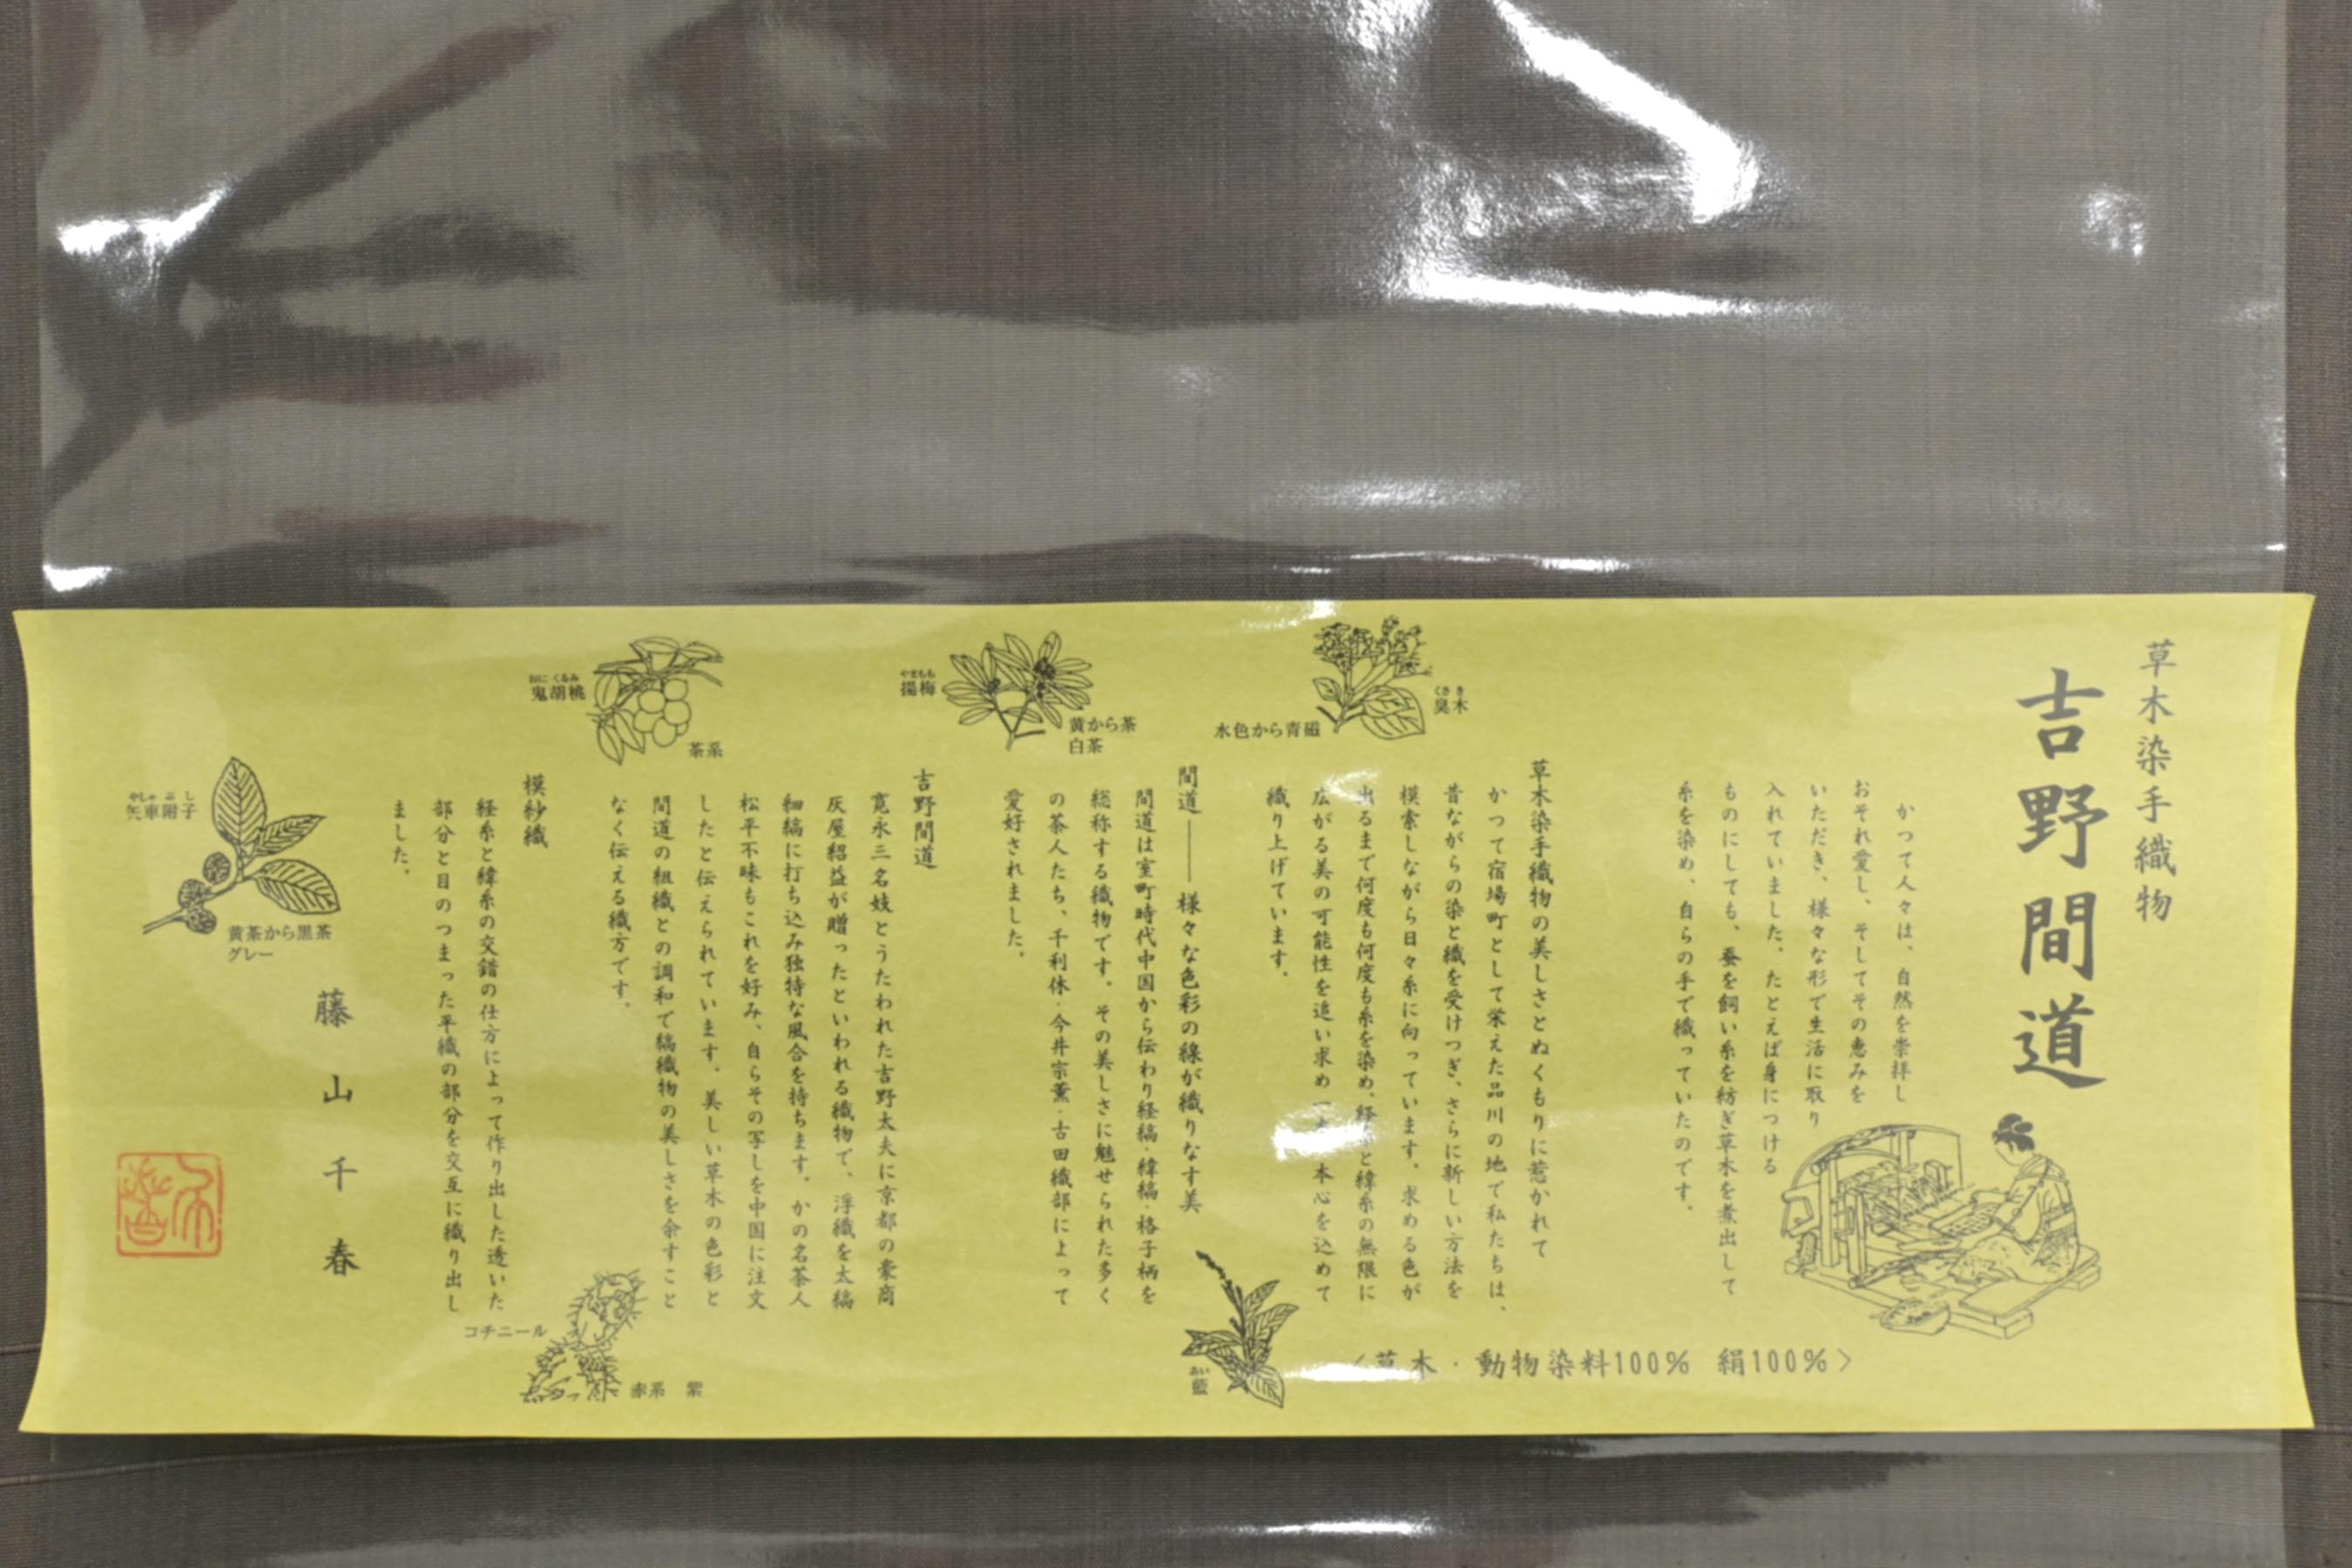 草木染手織物
吉野間道
かつて人々は、自然を崇拝し
おそれ愛し、そしてその恵みを
いただき、様々な形で生活に取り
入れていました。たとえば身につける
ものにしても、蚕を飼い糸を紡ぎ草木を煮出して
糸を染め、自らの手で織っていたのです。
草木染手織物の美しさとぬくもりに惹かれて
かつて宿場町として栄えた品川の地で私たちは、
昔ながらの染と織を受けつぎ、さらに新しい方法を
模索しながら日々糸に向っています。求める色が
出るまで何度も何度も糸を染め、経糸と緯糸の無限に
広がる美の可能性を追い求め一本一本心を込めて
織り上げています。
間道―― 様々な色彩の線が織りなす美
間道は室町時代中国から伝わり経縞・緯縞・格子柄を
総称する織物です。その美しさに魅せられた多く
の茶人たち、千利休・今井宗薫・古田織部によって
愛好されました。
吉野間道
寛永三名妓とうたわれた吉野太夫に京都の豪商
灰屋紹益が贈ったといわれる織物で、浮織を太縞
細縞に打ち込み独特な風合を持ちます。かの名茶人
松平不昧もこれを好み、自らその写しを中国に注文
したと伝えられています。美しい草木の色彩と
間道の組織との調和で縞織物の美しさを余すこと
なく伝える織方です。
模紗織
経糸と緯糸の交錯の仕方によって作り出した透いた
部分と目のつまった平織の部分を交互に織り出し
ました。
藤山千春
くさき
臭木
水色から青磁
やまもも
揚梅
黄から茶
白茶
おにくるみ
鬼胡桃
茶系
やしゃぶし
矢車附子
黄茶から黒茶
グレー
コチニール
赤系 紫
あい
藍
〈草木・動物染料100% 絹100%〉